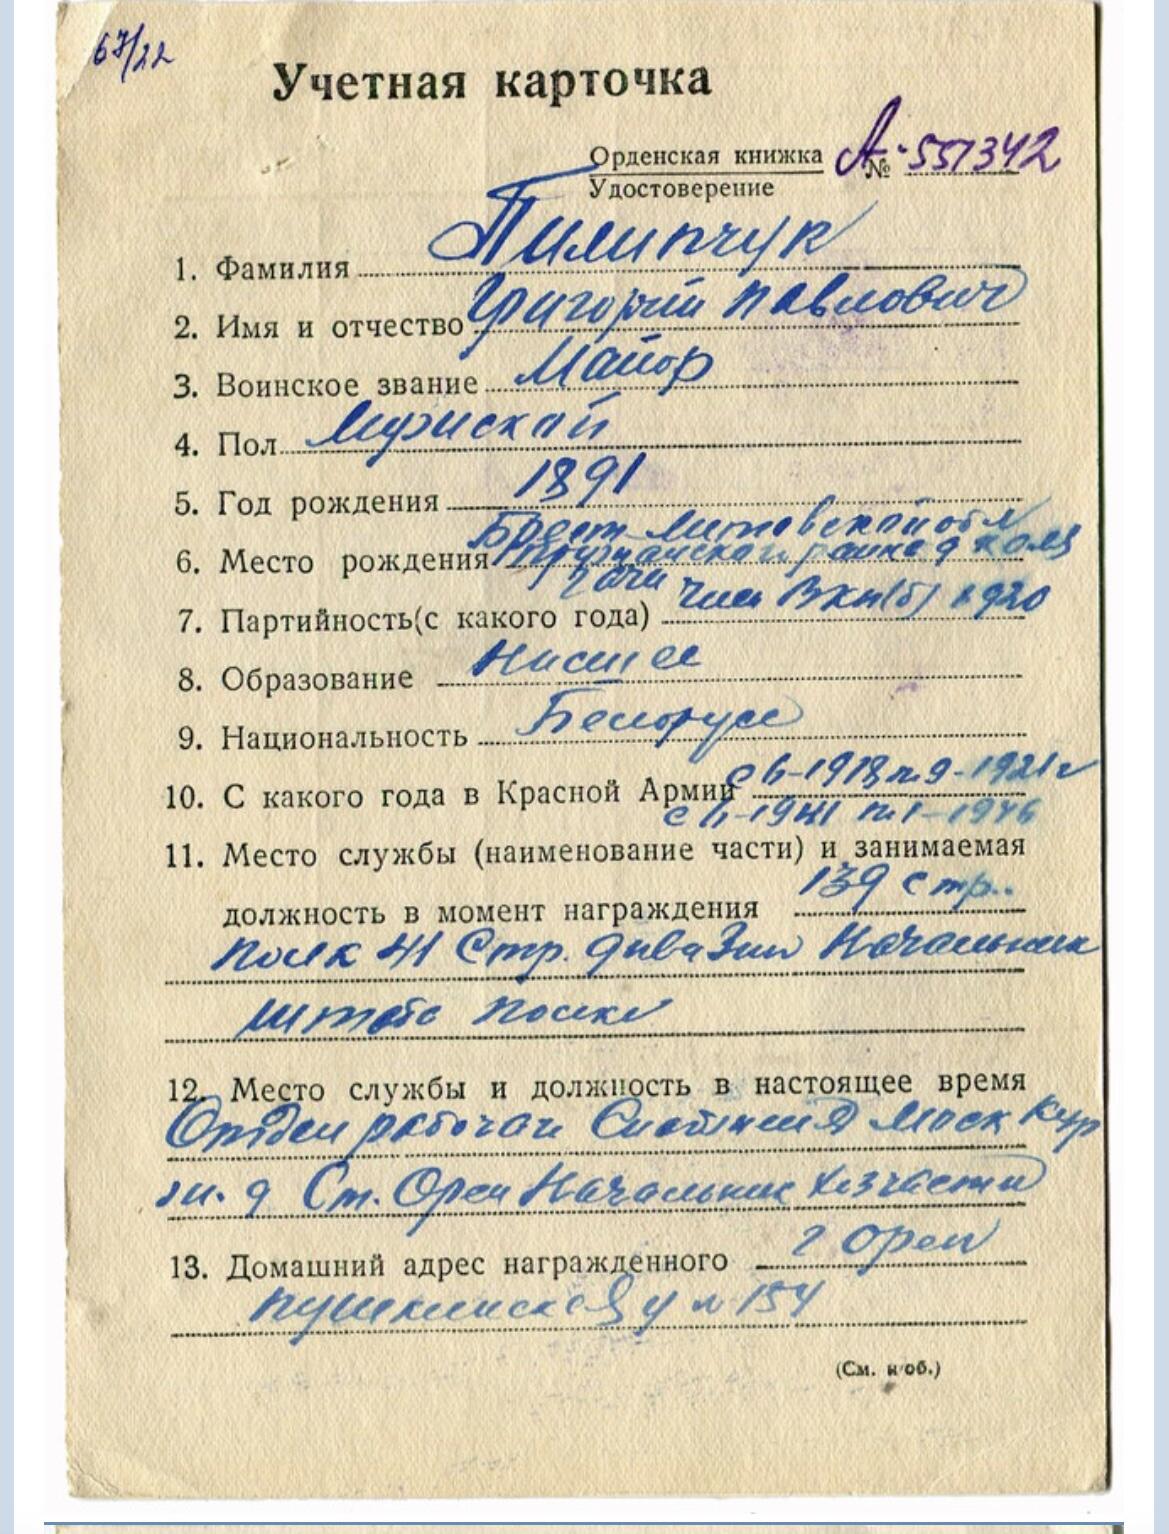 67/22
Учетная карточка
Орденская книжка А № 551342
Удостоверение
1. Фамилия Пилипчук
2. Имя и отчество Григорий Павлович
3. Воинское звание Майор
4. Пол Мужской
5. Год рождения 1891
Брест Литовской обл
6. Место рождения Пружанского района д
7. Партийность(с какого года) член ВКП(б) 1920
8. Образование Нисшее
9. Национальность Белорус
10. С какого года в Красной Армии с 6-1918 п 9-1921 г
1941 1-1946
11. Место службы (наименование части) и занимаемая
должность в момент награждения 139 стр.
полк 41 Стр. дивизии Начальник
штаба полка
12. Место службы и должность в настоящее время
Отдел рабочего Снабжения Моск Кур
ж. д Ст. Орел Начальник хозчасти
13. Домашний адрес награжденного г Орел
Пушкинская ул 154
(См. н об.)